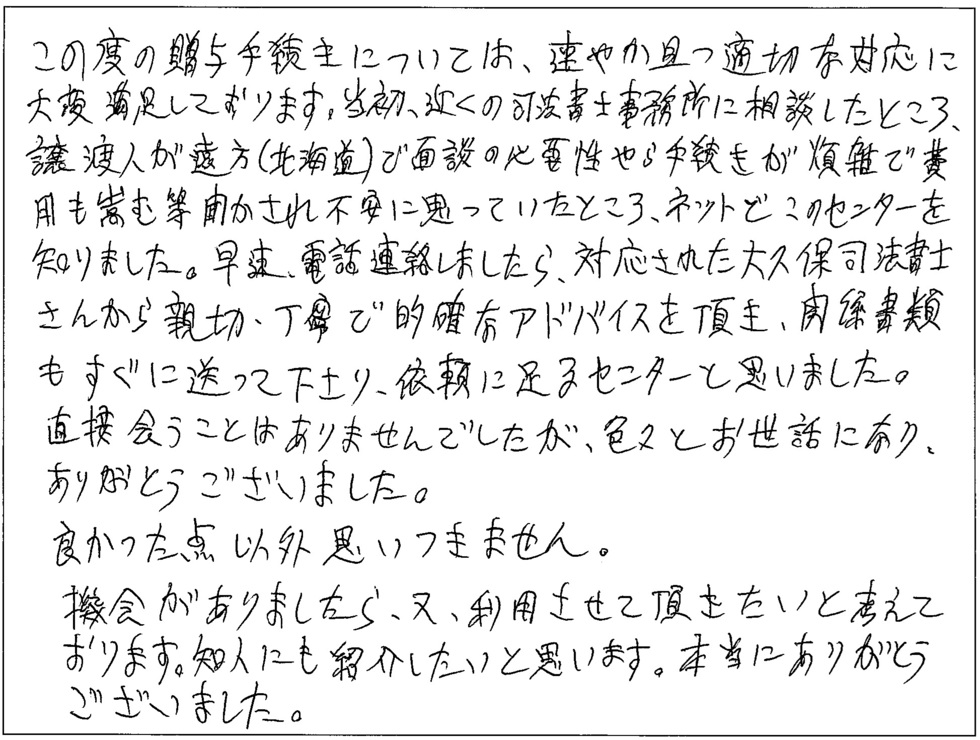 この度の贈与手続きについては、速やか且つ適切な対応に
大変満足しております。当初、近くの司法書士事務所に相談したところ、
譲渡人が遠方(北海道)で面談の必要性やら手続きが煩雑で費
用も嵩む等聞かされ不安に思っていたところ、ネットでこのセンターを
知りました。早速、電話連絡しましたら、対応された大久保司法書士
さんから親切、丁寧で的確なアドバイスを頂き、関係書類
もすぐに送って下さり、依頼に足るセンターと思いました。
直接会うことはありませんでしたが、色々とお世話になり、
ありがとうございました。
良かった点以外思いつきません。
機会がありましたら、又、利用させて頂きたいと考えて
おります。知人にも紹介したいと思います。本当にありがとう
ございました。